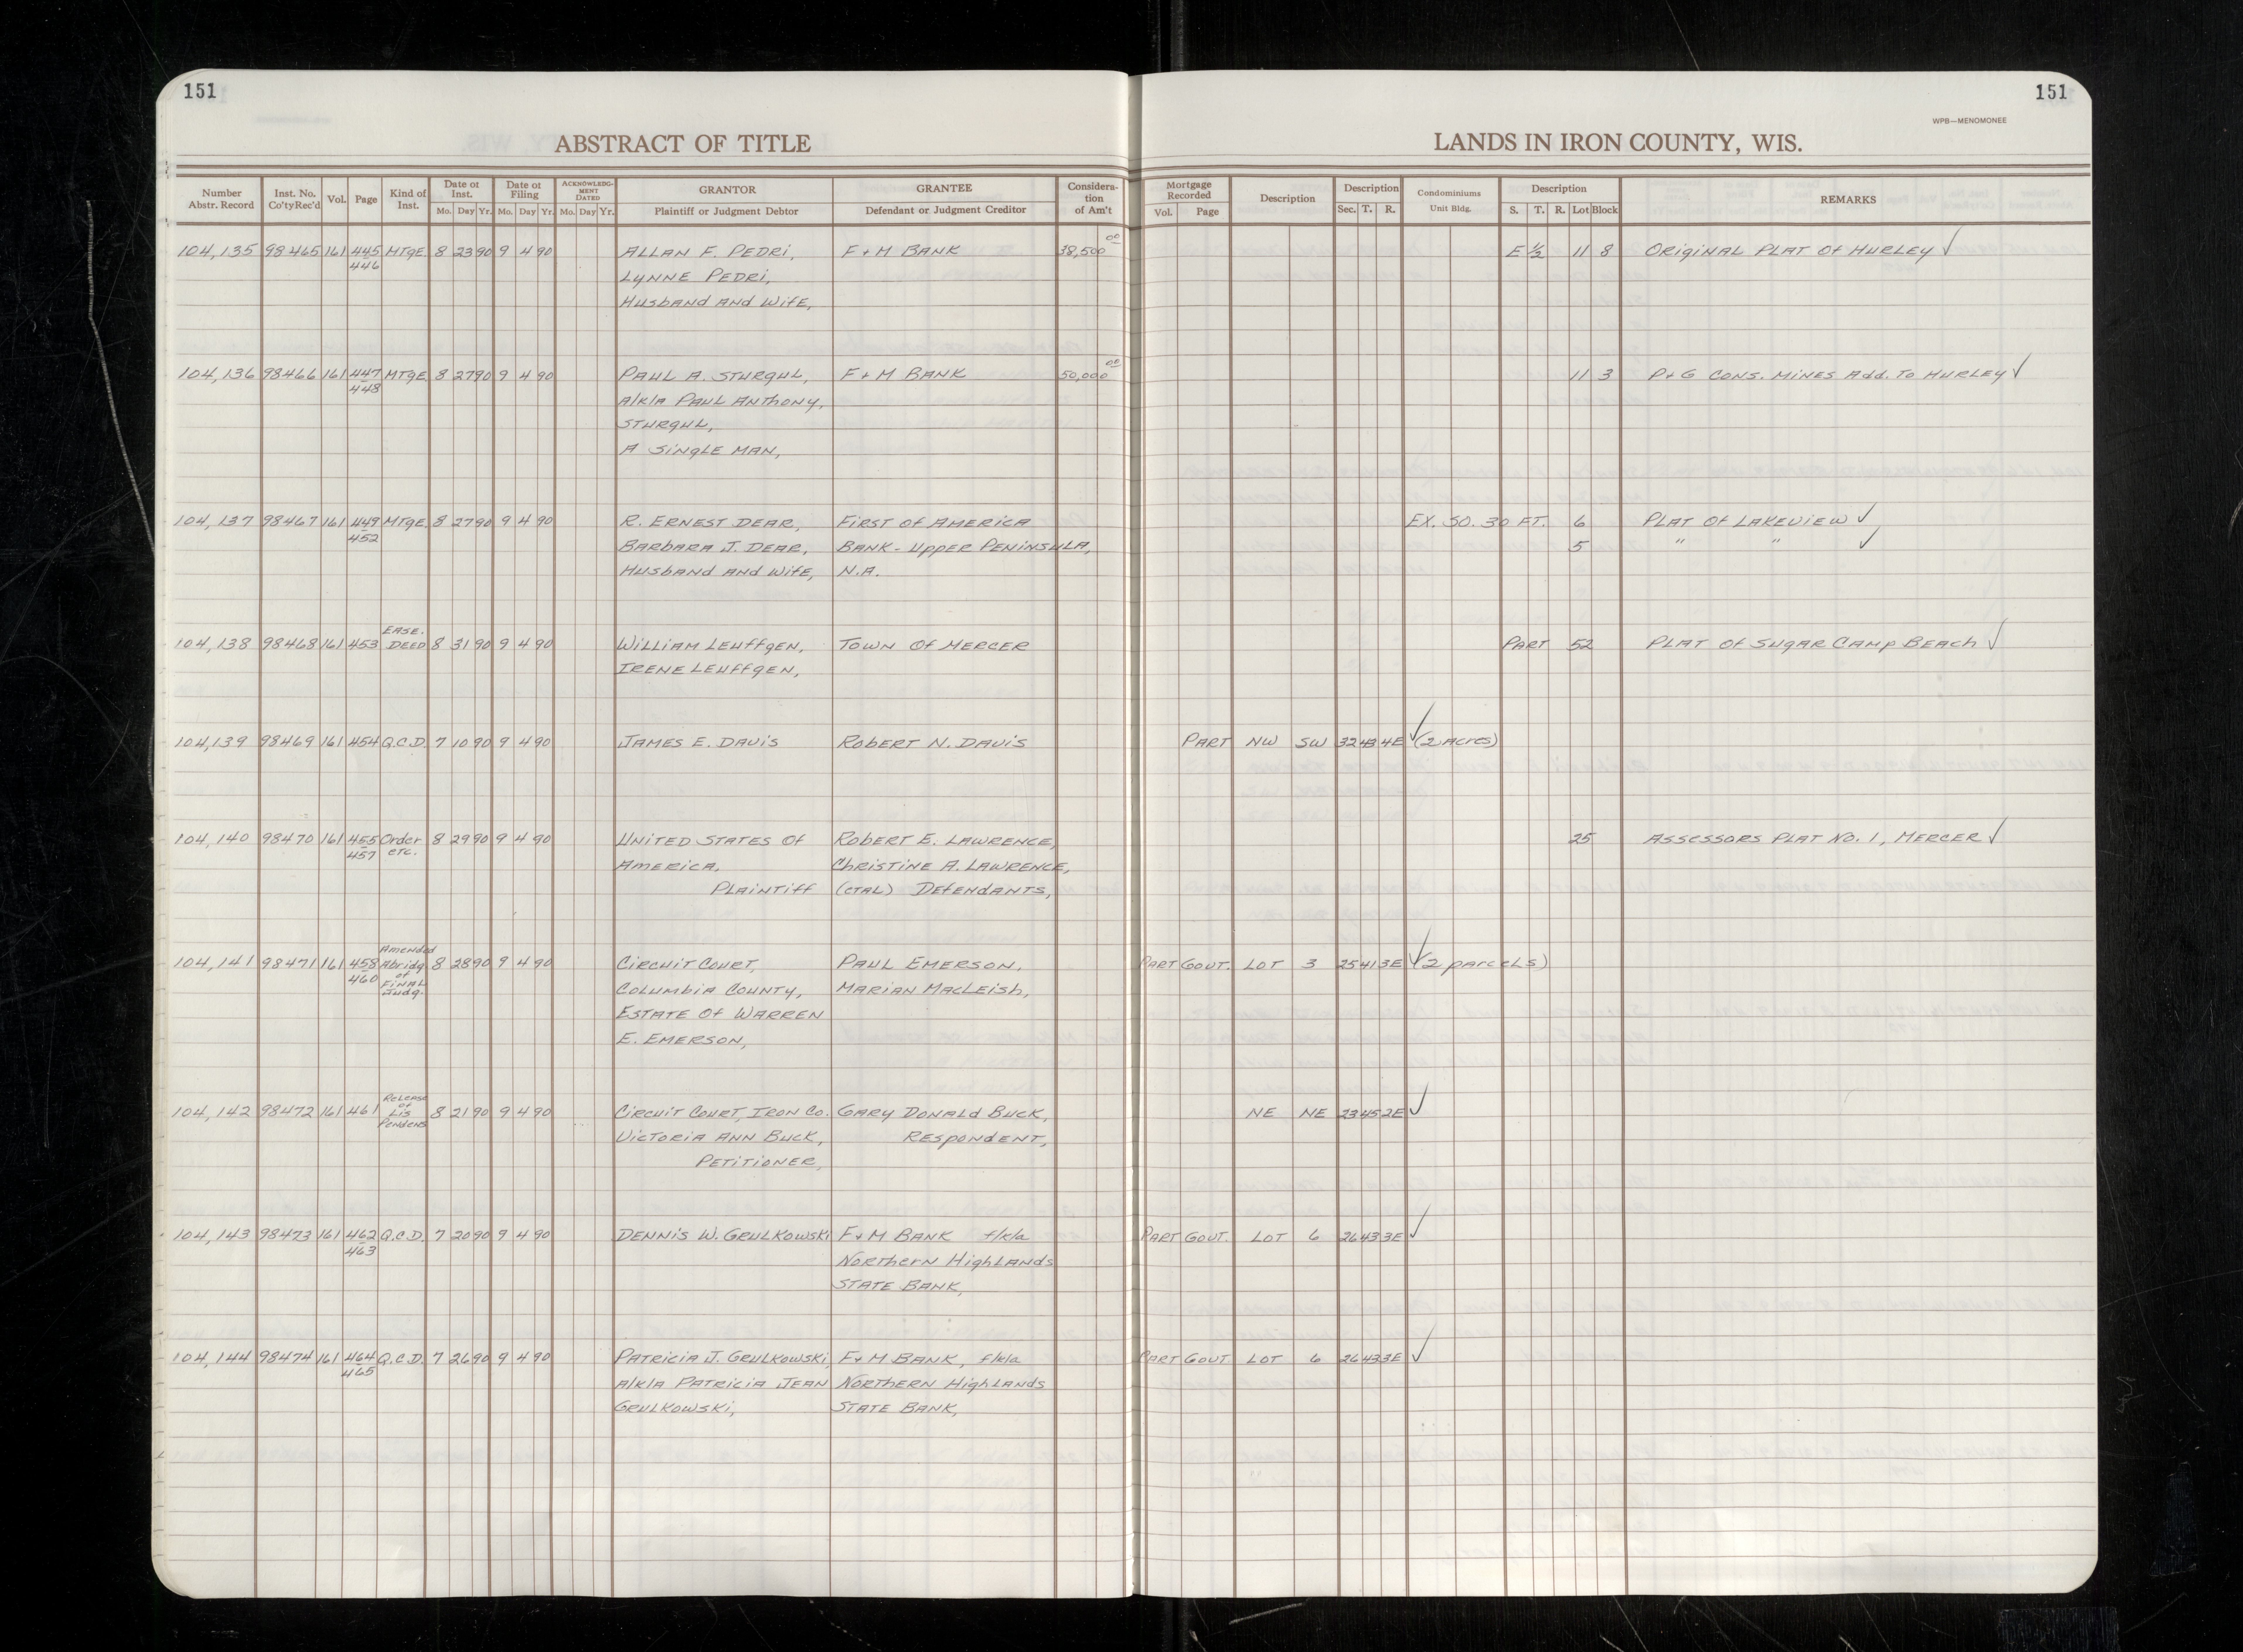 151
151
WPB—MENOMONEE
ABSTRACT OF TITLE
LANDS IN IRON COUNTY, WIS.
Number Abstr. Record | Inst. No. Co'ty Rec'd | Vol. | Page | Kind of Inst. | Date of Inst. Mo. Day Yr. | Date of Filing Mo. Day Yr. | ACKNOWLEDGMENT DATED Mo. Day Yr. | GRANTOR Plaintiff or Judgment Debtor | GRANTEE Defendant or Judgment Creditor | Considera-tion of Am't | Mortgage Recorded Vol. Page | Description | Description Sec. T. R. | Condominiums Unit Bldg. | Description S. T. R. Lot Block | REMARKS
104,135 98465 161 445 MTGE. 8 23 90 9 4 90 ALLAN F. PEDRI, F+M BANK 38,500 00 E 1/2 11 8 ORIGINAL PLAT OF HURLEY ✓
446 LYNNE PEDRI,
HUSBAND AND WIFE,
104,136 98466 161 447 MTGE. 8 27 90 9 4 90 PAUL A. STURGUL, F+M BANK 50,000 00 11 3 P+G CONS. MINES Add. TO HURLEY ✓
448 A/K/A PAUL ANTHONY,
STURGUL,
A SINGLE MAN,
104,137 98467 161 449 MTGE. 8 27 90 9 4 90 R. ERNEST DEAR, FIRST OF AMERICA EX. SO. 30 FT. 6 PLAT OF LAKEVIEW ✓
452 BARBARA J. DEAR, BANK-UPPER PENINSULA, 5 " " ✓
HUSBAND AND WIFE, N.A.
EASE.
104,138 98468 161 453 DEED 8 31 90 9 4 90 WILLIAM LEUFFGEN, TOWN OF MERCER PART 52 PLAT OF SUGAR CAMP BEACH ✓
IRENE LEUFFGEN,
104,139 98469 161 454 Q.C.D. 7 10 90 9 4 90 JAMES E. DAVIS ROBERT N. DAVIS PART NW SW 32 43 4E ✓ (2 ACRES)
104,140 98470 161 455 Order 8 29 90 9 4 90 UNITED STATES OF ROBERT E. LAWRENCE, 25 ASSESSORS PLAT NO. 1, MERCER ✓
457 ETC. AMERICA, CHRISTINE A. LAWRENCE,
PLAINTIFF (ETAL) DEFENDANTS,
Amended
104,141 98471 161 458 Abridg. 8 28 90 9 4 90 CIRCUIT COURT, PAUL EMERSON, PART GOVT. LOT 3 25 41 3E ✓ (2 PARCELS)
460 of FINAL Judg. COLUMBIA COUNTY, MARIAN MACLEISH,
ESTATE OF WARREN
E. EMERSON,
RELEASE of
104,142 98472 161 461 Lis 8 21 90 9 4 90 CIRCUIT COURT, IRON CO. GARY DONALD BUCK, NE NE 23 45 2E ✓
Pendens VICTORIA ANN BUCK, RESPONDENT,
PETITIONER,
104,143 98473 161 462 Q.C.D. 7 20 90 9 4 90 DENNIS W. GRULKOWSKI F+M BANK f/k/a PART GOVT. LOT 6 26 43 3E ✓
463 NORTHERN HIGHLANDS
STATE BANK,
104,144 98474 161 464 Q.C.D. 7 26 90 9 4 90 PATRICIA J. GRULKOWSKI, F+M BANK, f/k/a PART GOVT LOT 6 26 43 3E ✓
465 A/K/A PATRICIA JEAN NORTHERN HIGHLANDS
GRULKOWSKI, STATE BANK,